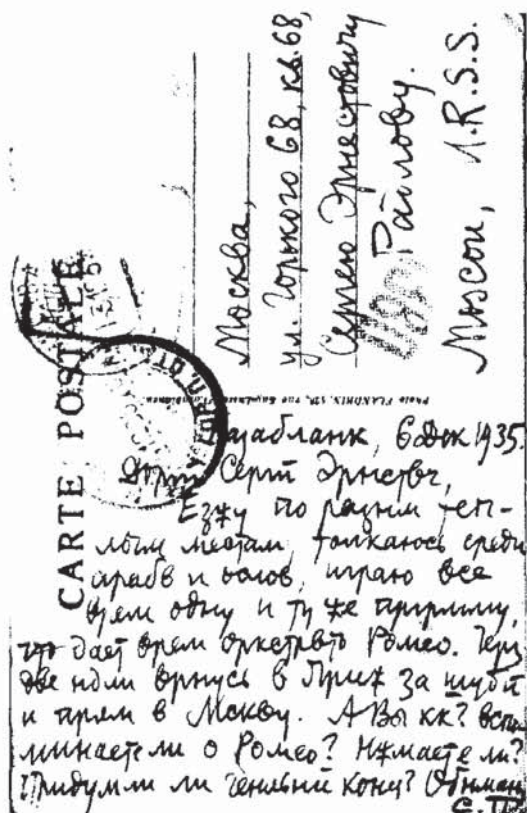 CARTE POSTALE
Москва,
ул. Горького 68, кв. 68,
Сергею Эрнестовичу
Радлову.
Moscou, U.R.S.S.
Photo FLANDRIN,
Казабланк, 6 Дек 1935
Эрнствч,
Езжу по разным теп-
лым местам, толкаюсь среди
арабв и волов, играю все
врем одну и ту же прогрмму,
что дает врем оркстрвть Ромео. Черз
две ндли врнусь в Приж за шубй
и прям в Мскву. А Вы кк? вспо-
минаете ли о Ромео? Нжмаете ли?
Придумли ли генильный конц? Обнимаю
С. П.